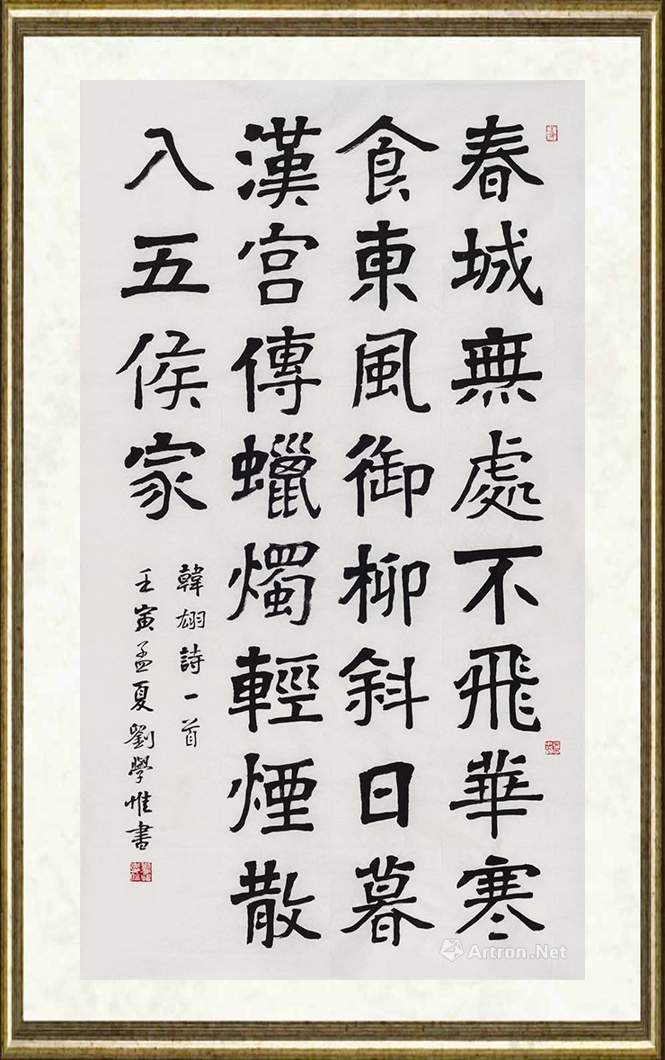 春城無處不飛華寒
食東風御柳斜日暮
漢宮傳蠟燭輕煙散
入五侯家
韓翃詩一首
壬寅孟夏劉學惟書
Artron.Net